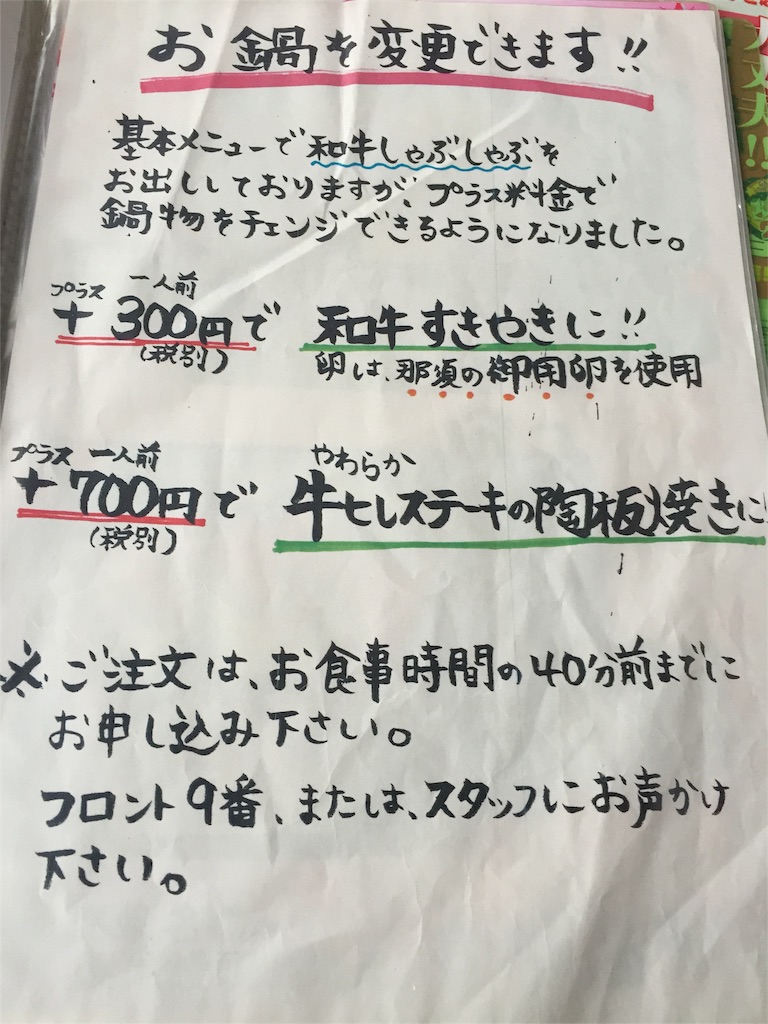 お鍋を変更できます!!
基本メニューで和牛しゃぶしゃぶを
お出ししておりますが、プラス料金で
鍋物をチェンジできるようになりました。
プラス 一人前
+300円で 和牛すきやきに!!
(税別) 卵は、那須の御用卵を使用
プラス 一人前 やわらか
+700円で 牛ヒレステーキの陶板焼きに!
(税別)
※ご注文は、お食事時間の40分前までに
お申し込み下さい。
フロント9番、または、スタッフにお声かけ
下さい。